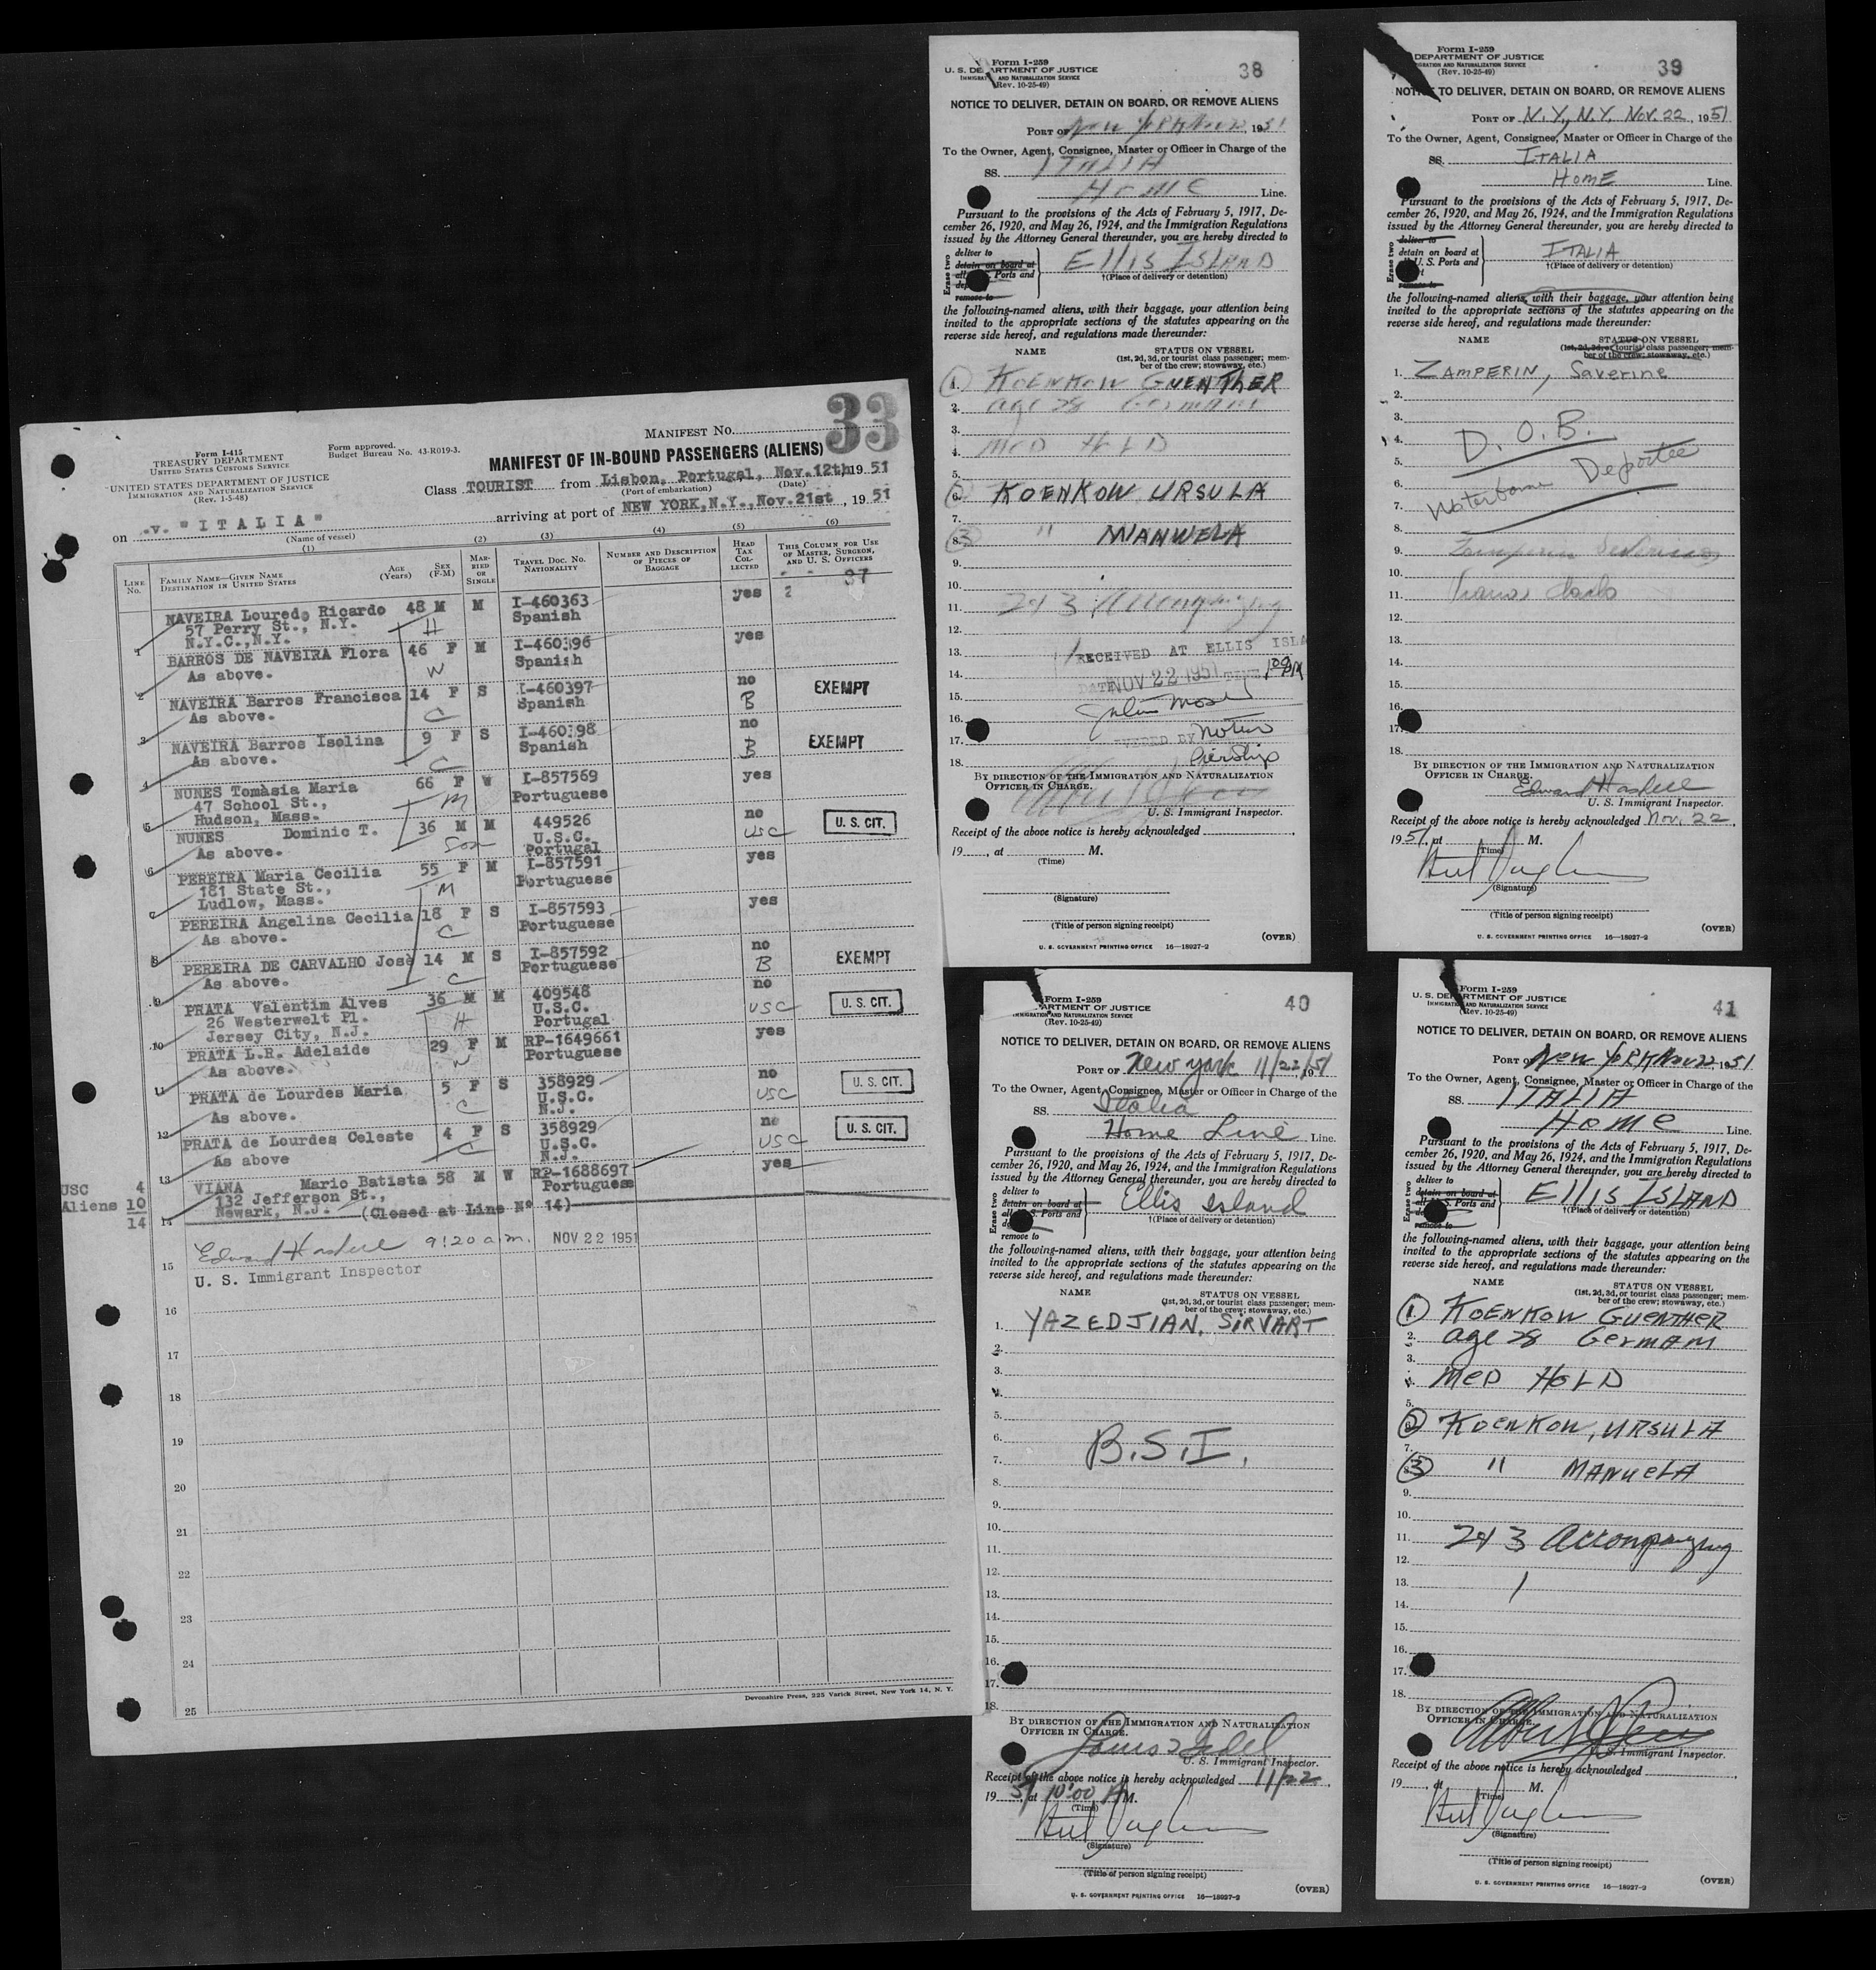 MANIFEST No. 33
Form I-415
TREASURY DEPARTMENT
UNITED STATES CUSTOMS SERVICE
UNITED STATES DEPARTMENT OF JUSTICE
IMMIGRATION AND NATURALIZATION SERVICE
(Rev. 1-5-48)
Form approved.
Budget Bureau No. 43-R019-3.
MANIFEST OF IN-BOUND PASSENGERS (ALIENS)
Class TOURIST from Lisbon, Portugal, Nov.12th, 1951
(Port of embarkation) (Date)
on .v. "ITALIA" arriving at port of NEW YORK, N.Y., Nov.21st, 1951
(Name of vessel)
(1) (2) (3) (4) (5) (6)
LINE No. FAMILY NAME—GIVEN NAME DESTINATION IN UNITED STATES AGE (Years) SEX (F-M) MARRIED OR SINGLE TRAVEL DOC. NO. NATIONALITY NUMBER AND DESCRIPTION OF PIECES OF BAGGAGE HEAD TAX COLLECTED THIS COLUMN FOR USE OF MASTER, SURGEON, AND U. S. OFFICERS
37
NAVEIRA Louredo Ricardo 48 M M I-460363 yes 2
57 Perry St., N.Y. H Spanish
1 N.Y.C.,N.Y.
BARROS DE NAVEIRA Flora 46 F M I-460396 yes
As above. W Spanish
2
NAVEIRA Barros Francisca 14 F S I-460397 no EXEMPT
As above. C Spanish B
3
NAVEIRA Barros Isolina 9 F S I-460398 no EXEMPT
As above. C Spanish B
4
NUNES Tomàsia Maria 66 F W I-857569 yes
47 School St., M Portuguese
5 Hudson, Mass.
NUNES Dominic T. 36 M M 449526 no U. S. CIT.
As above. Son U.S.C. USC
6 Portugal
PEREIRA Maria Cecilia 55 F M I-857591 yes
181 State St., M Portuguese
7 Ludlow, Mass.
PEREIRA Angelina Cecilia 18 F S I-857593 yes
As above. C Portuguese
8
PEREIRA DE CARVALHO Josè 14 M S I-857592 no EXEMPT
As above. C Portuguese B
9
PRATA Valentim Alves 36 M M 409548 no U. S. CIT.
26 Westerwelt Pl. H U.S.C. USC
10 Jersey City, N.J. Portugal
PRATA L.R. Adelaide 29 F M RP-1649661 yes
As above. W Portuguese
11
PRATA de Lourdes Maria 5 F S 358929 no U. S. CIT.
As above. C U.S.C. USC
12 N.J.
PRATA de Lourdes Celeste 4 F S 358929 no U. S. CIT.
As above C U.S.C. USC
13 N.J.
VIANA Mario Batista 58 M W RP-1688697 yes
132 Jefferson St., Portuguese
14 Newark, N.J. (Closed at Line Nº 14)
USC 4
Aliens 10
14
Edward Haskell 9:20 a.m. NOV 22 1951
15
U. S. Immigrant Inspector
16
17
18
19
20
21
22
23
24
25
Devonshire Press, 225 Varick Street, New York 14, N. Y.
Form I-259
U. S. DEPARTMENT OF JUSTICE
IMMIGRATION AND NATURALIZATION SERVICE
(Rev. 10-25-49)
38
NOTICE TO DELIVER, DETAIN ON BOARD, OR REMOVE ALIENS
PORT OF New York Nov 22, 1951
To the Owner, Agent, Consignee, Master or Officer in Charge of the
SS. ITALIA
Home Line.
Pursuant to the provisions of the Acts of February 5, 1917, De-
cember 26, 1920, and May 26, 1924, and the Immigration Regulations
issued by the Attorney General thereunder, you are hereby directed to
Erase two
deliver to
detain on board at
all U. S. Ports and
remove to
Ellis Island
†(Place of delivery or detention)
the following-named aliens, with their baggage, your attention being
invited to the appropriate sections of the statutes appearing on the
reverse side hereof, and regulations made thereunder:
NAME STATUS ON VESSEL
(1st, 2d, 3d, or tourist class passenger; mem-
ber of the crew; stowaway, etc.)
1. KOENKOW GUENTHER
2. age 28 German
3.
4. MED HOLD
5.
6. KOENKOW URSULA
7.
8. 3 " MANWELA
9.
10.
11. 2 & 3 Accompanying
12.
13. RECEIVED AT ELLIS ISLA
14. DATE NOV 22 1951 TIME 1 00 PM
15.
16.
17.
18.
BY DIRECTION OF THE IMMIGRATION AND NATURALIZATION
OFFICER IN CHARGE.
U. S. Immigrant Inspector.
Receipt of the above notice is hereby acknowledged
19 , at M.
(Time)
(Signature)
(Title of person signing receipt)
U. S. GOVERNMENT PRINTING OFFICE 16—18927-2 (OVER)
Form I-259
DEPARTMENT OF JUSTICE
IMMIGRATION AND NATURALIZATION SERVICE
(Rev. 10-25-49)
39
NOTICE TO DELIVER, DETAIN ON BOARD, OR REMOVE ALIENS
PORT OF N.Y., N.Y. Nov. 22, 1951
To the Owner, Agent, Consignee, Master or Officer in Charge of the
SS. ITALIA
HOME Line.
Pursuant to the provisions of the Acts of February 5, 1917, De-
cember 26, 1920, and May 26, 1924, and the Immigration Regulations
issued by the Attorney General thereunder, you are hereby directed to
Erase two
deliver to
detain on board at
all U. S. Ports and
remove to
ITALIA
†(Place of delivery or detention)
the following-named aliens, with their baggage, your attention being
invited to the appropriate sections of the statutes appearing on the
reverse side hereof, and regulations made thereunder:
NAME STATUS ON VESSEL
(1st, 2d, 3d, or tourist class passenger; mem-
ber of the crew; stowaway, etc.)
1. ZAMPERIN, Saverine
2.
3.
4. D.O.B.
5.
6. Deportee
7. Waterborne
8.
9.
10.
11.
12.
13.
14.
15.
16.
17.
18.
BY DIRECTION OF THE IMMIGRATION AND NATURALIZATION
OFFICER IN CHARGE.
Edward Haskell
U. S. Immigrant Inspector.
Receipt of the above notice is hereby acknowledged Nov. 22,
1951, at M.
(Time)
(Signature)
(Title of person signing receipt)
(OVER)
U. S. GOVERNMENT PRINTING OFFICE 16—18927-2
Form I-259
DEPARTMENT OF JUSTICE
IMMIGRATION AND NATURALIZATION SERVICE
(Rev. 10-25-49)
40
NOTICE TO DELIVER, DETAIN ON BOARD, OR REMOVE ALIENS
PORT OF New York 11/22/51
To the Owner, Agent, Consignee, Master or Officer in Charge of the
SS. Italia
Home Line Line.
Pursuant to the provisions of the Acts of February 5, 1917, De-
cember 26, 1920, and May 26, 1924, and the Immigration Regulations
issued by the Attorney General thereunder, you are hereby directed to
Erase two
deliver to
detain on board at
all U. S. Ports and
remove to
Ellis Island
†(Place of delivery or detention)
the following-named aliens, with their baggage, your attention being
invited to the appropriate sections of the statutes appearing on the
reverse side hereof, and regulations made thereunder:
NAME STATUS ON VESSEL
(1st, 2d, 3d, or tourist class passenger; mem-
ber of the crew; stowaway, etc.)
1. YAZEDJIAN, SIRVART
2.
3.
4.
5.
6. B.S.I.
7.
8.
9.
10.
11.
12.
13.
14.
15.
16.
17.
18.
BY DIRECTION OF THE IMMIGRATION AND NATURALIZATION
OFFICER IN CHARGE.
U. S. Immigrant Inspector.
Receipt of the above notice is hereby acknowledged 11/22,
1951, at 10:00 A M.
(Time)
(Signature)
(Title of person signing receipt)
(OVER)
U. S. GOVERNMENT PRINTING OFFICE 16—18927-2
Form I-259
U. S. DEPARTMENT OF JUSTICE
IMMIGRATION AND NATURALIZATION SERVICE
(Rev. 10-25-49)
41
NOTICE TO DELIVER, DETAIN ON BOARD, OR REMOVE ALIENS
PORT OF New York Nov 22 1951
To the Owner, Agent, Consignee, Master or Officer in Charge of the
SS. ITALIA
Home Line.
Pursuant to the provisions of the Acts of February 5, 1917, De-
cember 26, 1920, and May 26, 1924, and the Immigration Regulations
issued by the Attorney General thereunder, you are hereby directed to
Erase two
deliver to
detain on board at
all U. S. Ports and
remove to
Ellis Island
†(Place of delivery or detention)
the following-named aliens, with their baggage, your attention being
invited to the appropriate sections of the statutes appearing on the
reverse side hereof, and regulations made thereunder:
NAME STATUS ON VESSEL
(1st, 2d, 3d, or tourist class passenger; mem-
ber of the crew; stowaway, etc.)
1. KOENKOW GUENTHER
2. age 28 German
3.
4. MED HOLD
5.
2 KOENKOW, URSULA
7.
3 " MANUELA
9.
10.
11. 2 & 3 Accompanying
12.
13. 1
14.
15.
16.
17.
18.
BY DIRECTION OF THE IMMIGRATION AND NATURALIZATION
OFFICER IN CHARGE.
U. S. Immigrant Inspector.
Receipt of the above notice is hereby acknowledged
19 , at M.
(Time)
(Signature)
(Title of person signing receipt)
(OVER)
U. S. GOVERNMENT PRINTING OFFICE 16—18927-2